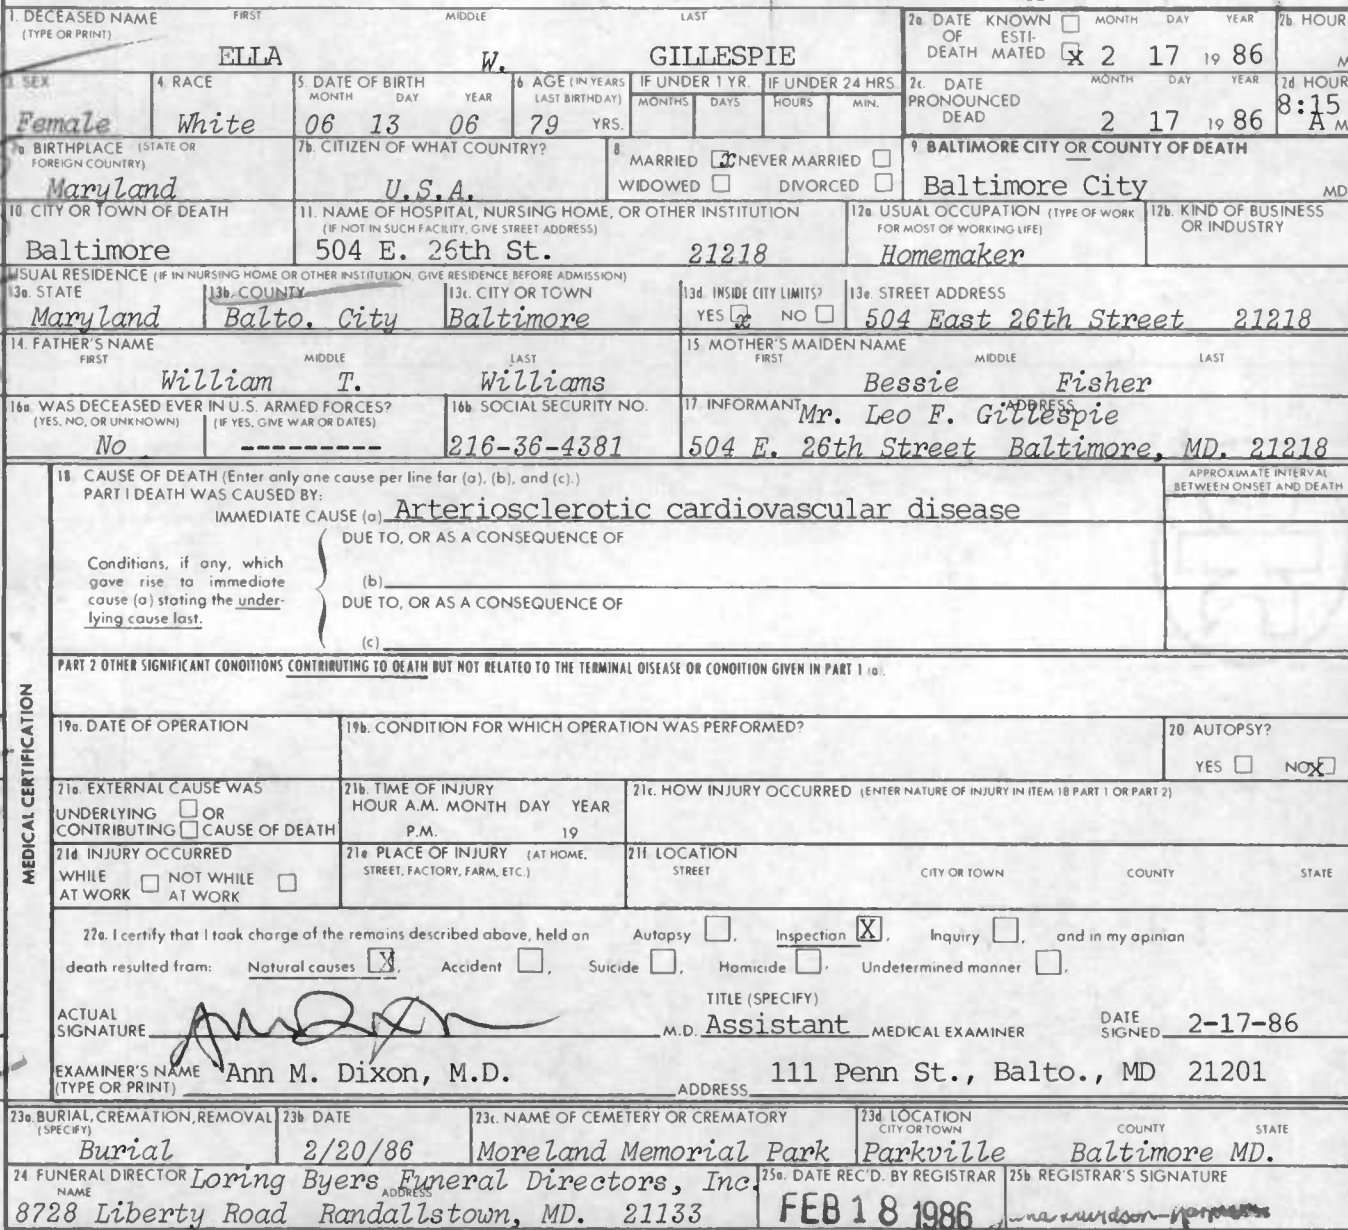 1. DECEASED NAME (TYPE OR PRINT) FIRST MIDDLE LAST
ELLA W. GILLESPIE
2a. DATE OF DEATH KNOWN ☐ ESTIMATED ☒ MONTH DAY YEAR
2 17 19 86
2b. HOUR
M
3 SEX
Female
4. RACE
White
5. DATE OF BIRTH MONTH DAY YEAR
06 13 06
6 AGE (IN YEARS LAST BIRTHDAY)
79 YRS.
IF UNDER 1 YR. MONTHS DAYS
IF UNDER 24 HRS HOURS MIN.
2c. DATE PRONOUNCED DEAD MONTH DAY YEAR
2 17 19 86
2d HOUR
8:15 A M
7a BIRTHPLACE (STATE OR FOREIGN COUNTRY)
Maryland
7b. CITIZEN OF WHAT COUNTRY?
U.S.A.
8 MARRIED ☒ NEVER MARRIED ☐
WIDOWED ☐ DIVORCED ☐
9. BALTIMORE CITY OR COUNTY OF DEATH
Baltimore City MD
10. CITY OR TOWN OF DEATH
Baltimore
11. NAME OF HOSPITAL, NURSING HOME, OR OTHER INSTITUTION
(IF NOT IN SUCH FACILITY, GIVE STREET ADDRESS)
504 E. 26th St. 21218
12a. USUAL OCCUPATION (TYPE OF WORK FOR MOST OF WORKING LIFE)
Homemaker
12b. KIND OF BUSINESS OR INDUSTRY
USUAL RESIDENCE (IF IN NURSING HOME OR OTHER INSTITUTION, GIVE RESIDENCE BEFORE ADMISSION)
13a. STATE
Maryland
13b. COUNTY
Balto. City
13c. CITY OR TOWN
Baltimore
13d. INSIDE CITY LIMITS?
YES ☒ NO ☐
13e. STREET ADDRESS
504 East 26th Street 21218
14. FATHER'S NAME FIRST MIDDLE LAST
William T. Williams
15 MOTHER'S MAIDEN NAME FIRST MIDDLE LAST
Bessie Fisher
16a. WAS DECEASED EVER IN U.S. ARMED FORCES?
(YES, NO, OR UNKNOWN) (IF YES, GIVE WAR OR DATES)
No ---------
16b. SOCIAL SECURITY NO.
216-36-4381
17 INFORMANT ADDRESS
Mr. Leo F. Gillespie
504 E. 26th Street Baltimore, MD. 21218
MEDICAL CERTIFICATION
18 CAUSE OF DEATH (Enter only one cause per line for (a), (b), and (c).)
PART I DEATH WAS CAUSED BY:
APPROXIMATE INTERVAL BETWEEN ONSET AND DEATH
IMMEDIATE CAUSE (a) Arteriosclerotic cardiovascular disease
Conditions, if any, which gave rise to immediate cause (a) stating the underlying cause last.
DUE TO, OR AS A CONSEQUENCE OF
(b)
DUE TO, OR AS A CONSEQUENCE OF
(c)
PART 2 OTHER SIGNIFICANT CONDITIONS CONTRIBUTING TO DEATH BUT NOT RELATED TO THE TERMINAL DISEASE OR CONDITION GIVEN IN PART 1 (a).
19a. DATE OF OPERATION
19b. CONDITION FOR WHICH OPERATION WAS PERFORMED?
20 AUTOPSY?
YES ☐ NO ☒
21a. EXTERNAL CAUSE WAS
UNDERLYING ☐ OR
CONTRIBUTING ☐ CAUSE OF DEATH
21b. TIME OF INJURY
HOUR A.M. MONTH DAY YEAR
P.M. 19
21c. HOW INJURY OCCURRED (ENTER NATURE OF INJURY IN ITEM 18 PART 1 OR PART 2)
21d INJURY OCCURRED
WHILE AT WORK ☐ NOT WHILE AT WORK ☐
21e PLACE OF INJURY (AT HOME, STREET, FACTORY, FARM, ETC.)
21f. LOCATION
STREET CITY OR TOWN COUNTY STATE
22a. I certify that I took charge of the remains described above, held an Autopsy ☐, Inspection ☒, Inquiry ☐, and in my opinion
death resulted from: Natural causes ☒, Accident ☐, Suicide ☐, Homicide ☐, Undetermined manner ☐.
ACTUAL SIGNATURE M.D.
TITLE (SPECIFY)
Assistant MEDICAL EXAMINER
DATE SIGNED 2-17-86
EXAMINER'S NAME (TYPE OR PRINT) Ann M. Dixon, M.D.
ADDRESS 111 Penn St., Balto., MD 21201
23a. BURIAL, CREMATION, REMOVAL (SPECIFY)
Burial
23b DATE
2/20/86
23c. NAME OF CEMETERY OR CREMATORY
Moreland Memorial Park
23d. LOCATION CITY OR TOWN COUNTY STATE
Parkville Baltimore MD.
24 FUNERAL DIRECTOR NAME ADDRESS
Loring Byers Funeral Directors, Inc.
8728 Liberty Road Randallstown, MD. 21133
25a. DATE REC'D. BY REGISTRAR
FEB 18 1986
25b REGISTRAR'S SIGNATURE